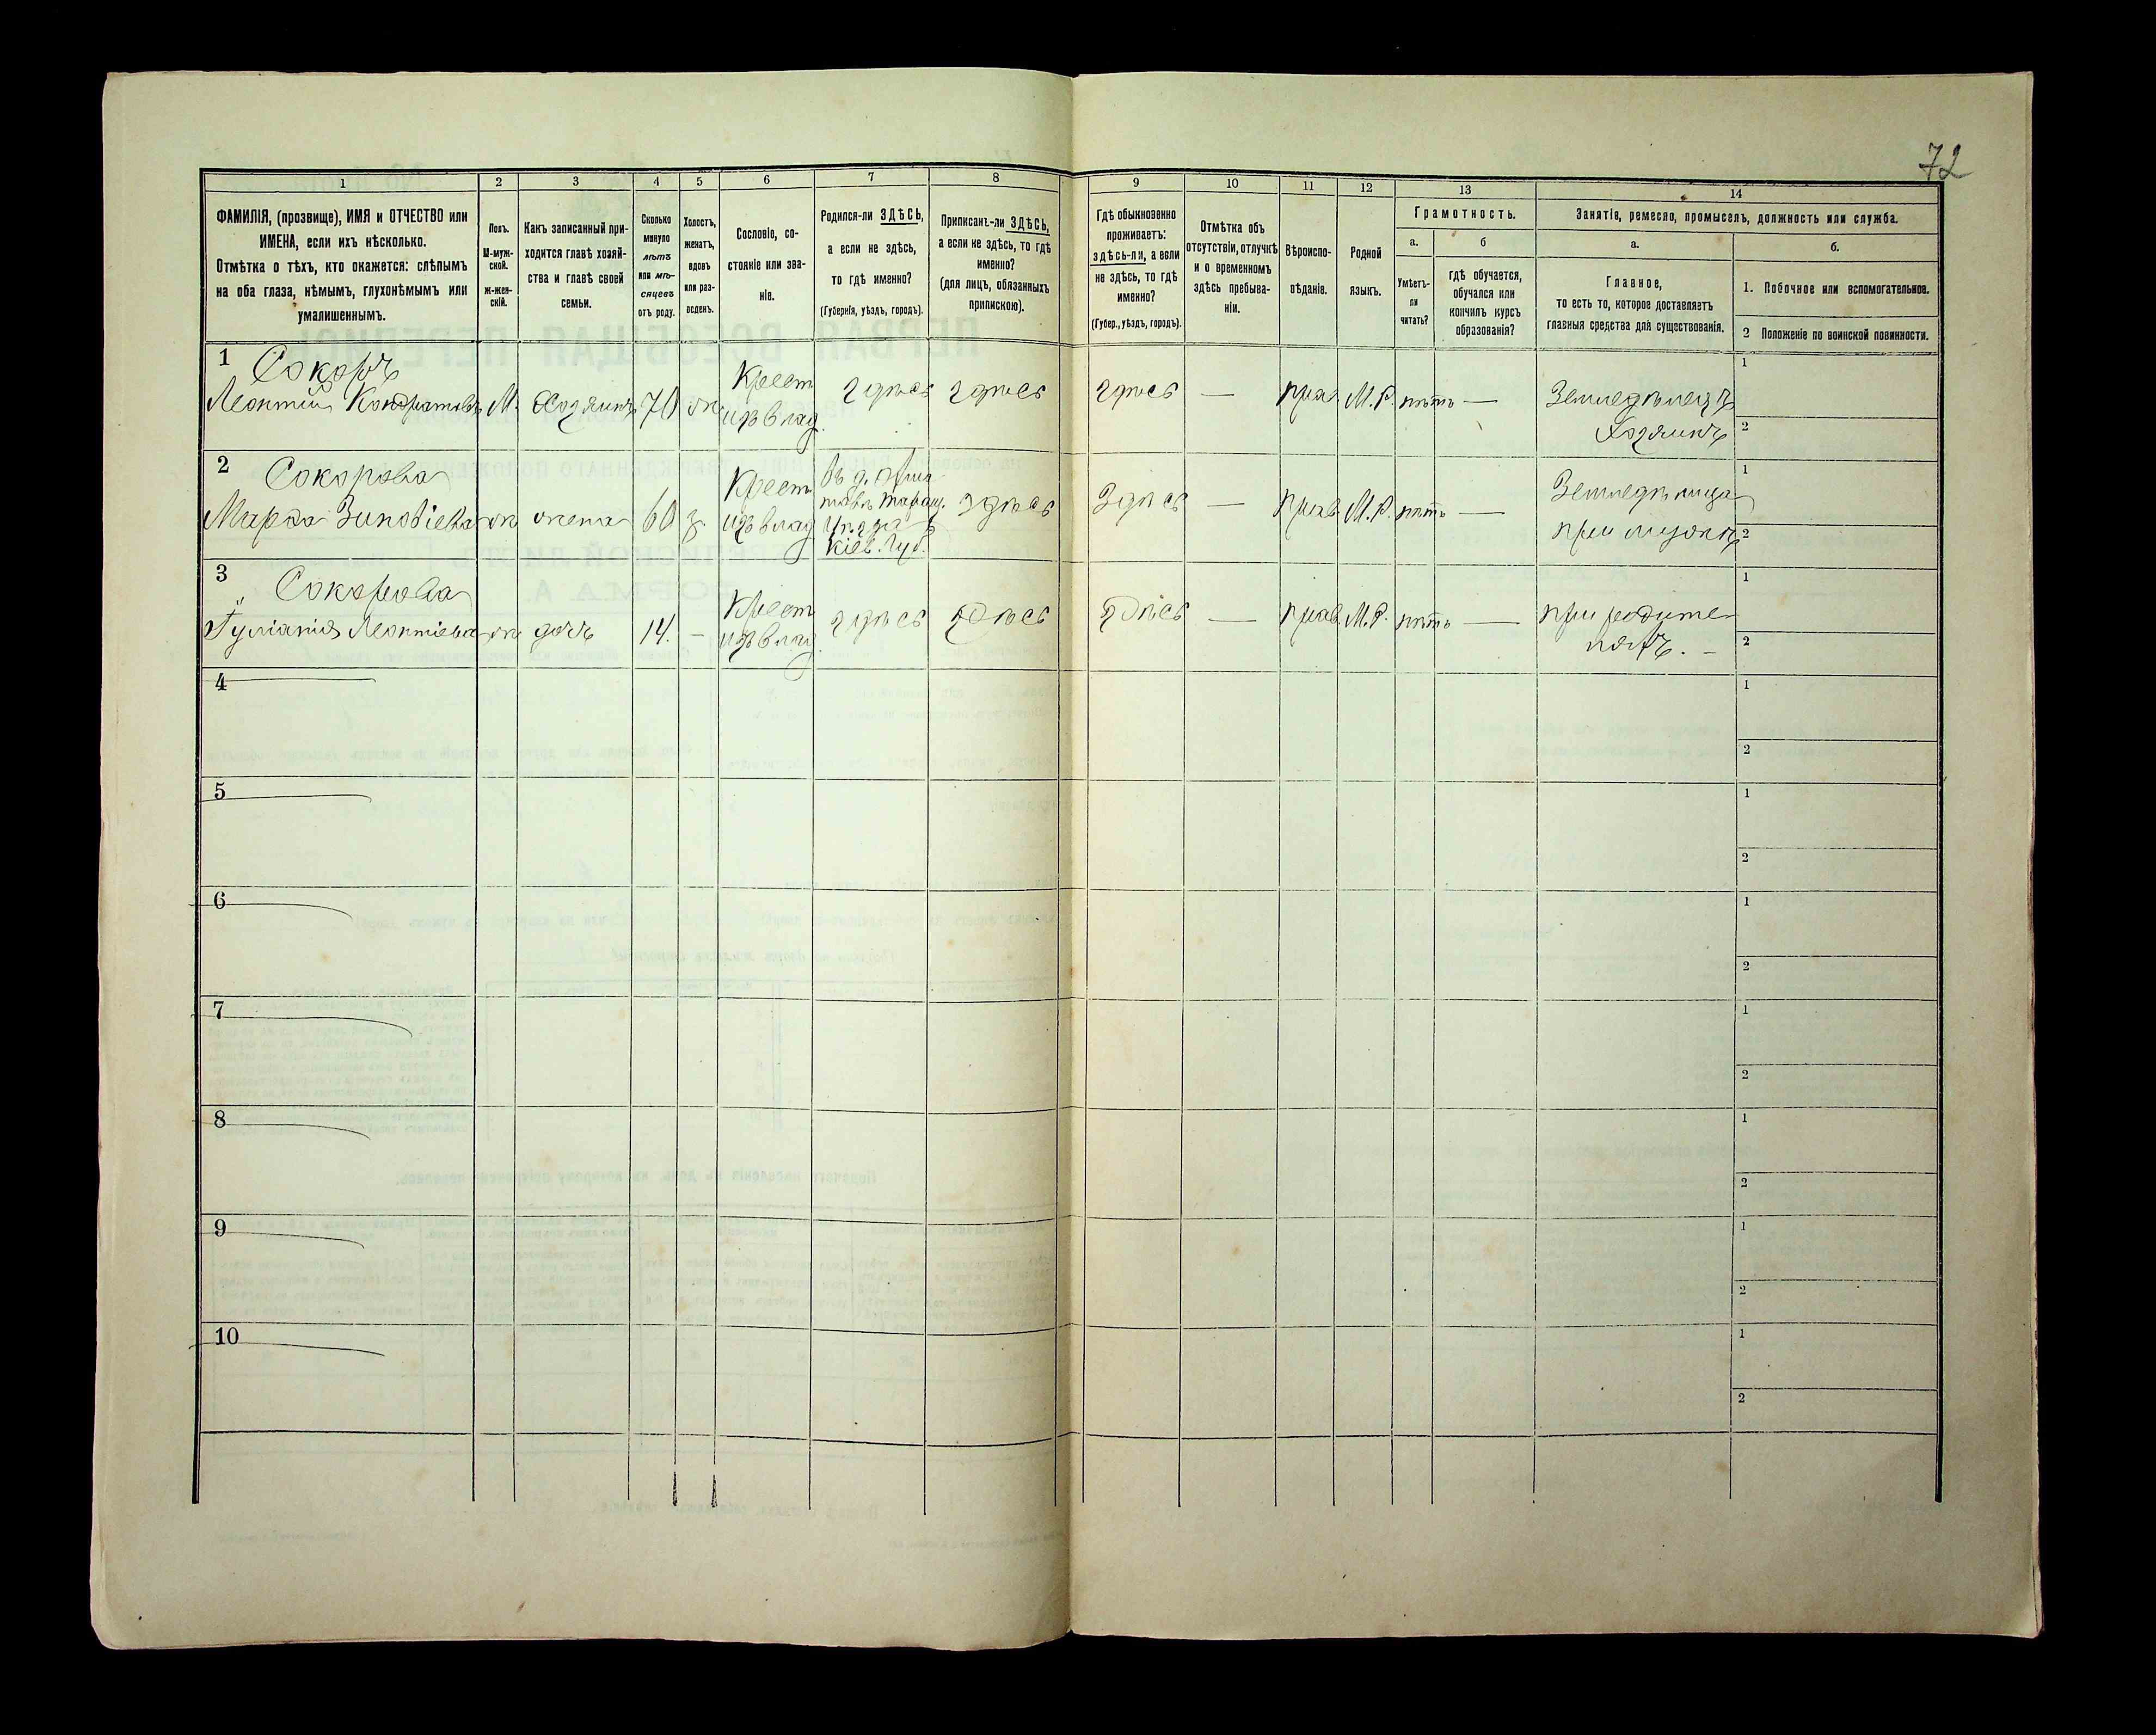 72
1 2 3 4 5 6 7 8 9 10 11 12 13 14
ФАМИЛІЯ, (прозвище), ИМЯ и ОТЧЕСТВО или
ИМЕНА, если ихъ нѣсколько.
Отмѣтка о тѣхъ, кто окажется: слѣпымъ
на оба глаза, нѣмымъ, глухонѣмымъ или
умалишеннымъ.
Полъ.
М-муж-
ской.
ж-жен-
скій.
Какъ записанный при-
ходится главѣ хозяй-
ства и главѣ своей
семьи.
Сколько
минуло
лѣтъ
или мѣ-
сяцевъ
отъ роду.
Холостъ,
женатъ,
вдовъ
или раз-
веденъ.
Сословіе, со-
стояніе или зва-
ніе.
Родился-ли ЗДѢСЬ,
а если не здѣсь,
то гдѣ именно?
(Губернія, уѣздъ, городъ).
Приписанъ-ли ЗДѢСЬ,
а если не здѣсь, то гдѣ
именно?
(для лицъ, обязанныхъ
припискою).
Гдѣ обыкновенно
проживаетъ:
здѣсь-ли, а если
не здѣсь, то гдѣ
именно?
(Губер., уѣздъ, городъ).
Отмѣтка объ
отсутствіи, отлучкѣ
и о временномъ
здѣсь пребыва-
ніи.
Вѣроиспо-
вѣданіе.
Родной
языкъ.
Грамотность.
а.
Умѣетъ-
ли
читать?
б
гдѣ обучается,
обучался или
кончилъ курсъ
образованія?
Занятіе, ремесло, промыселъ, должность или служба.
а.
Главное,
то есть то, которое доставляетъ
главныя средства для существованія.
б.
1. Побочное или вспомогательное.
2 Положеніе по воинской повинности.
1 Сокоръ
Леонтій Кондратовъ М. Хозяинъ 70 ж.
Крест
изъ влад.
здѣсь здѣсь здѣсь — прав. М.Р. нѣтъ —
Земледѣлецъ
Хозяинъ
1
2
2 Сокорова
Марфа Зиновіева ж жена 60 з.
Крест
изъ влад
Въ д.
Таращ.
Уѣзда
Кіев. Губ.
здѣсь Здѣсь — прав. М.Р. нѣтъ —
Земледѣлица
при мужѣ
1
2
3 Сокорова
Іуліанія Леонтіева ж дочь 14. —
Крест
изъ влад.
здѣсь здѣсь здѣсь — прав. М.Р. нѣтъ —
при родите-
ляхъ. —
1
2
4
1
2
5
1
2
6
1
2
7
1
2
8
1
2
9
1
2
10
1
2